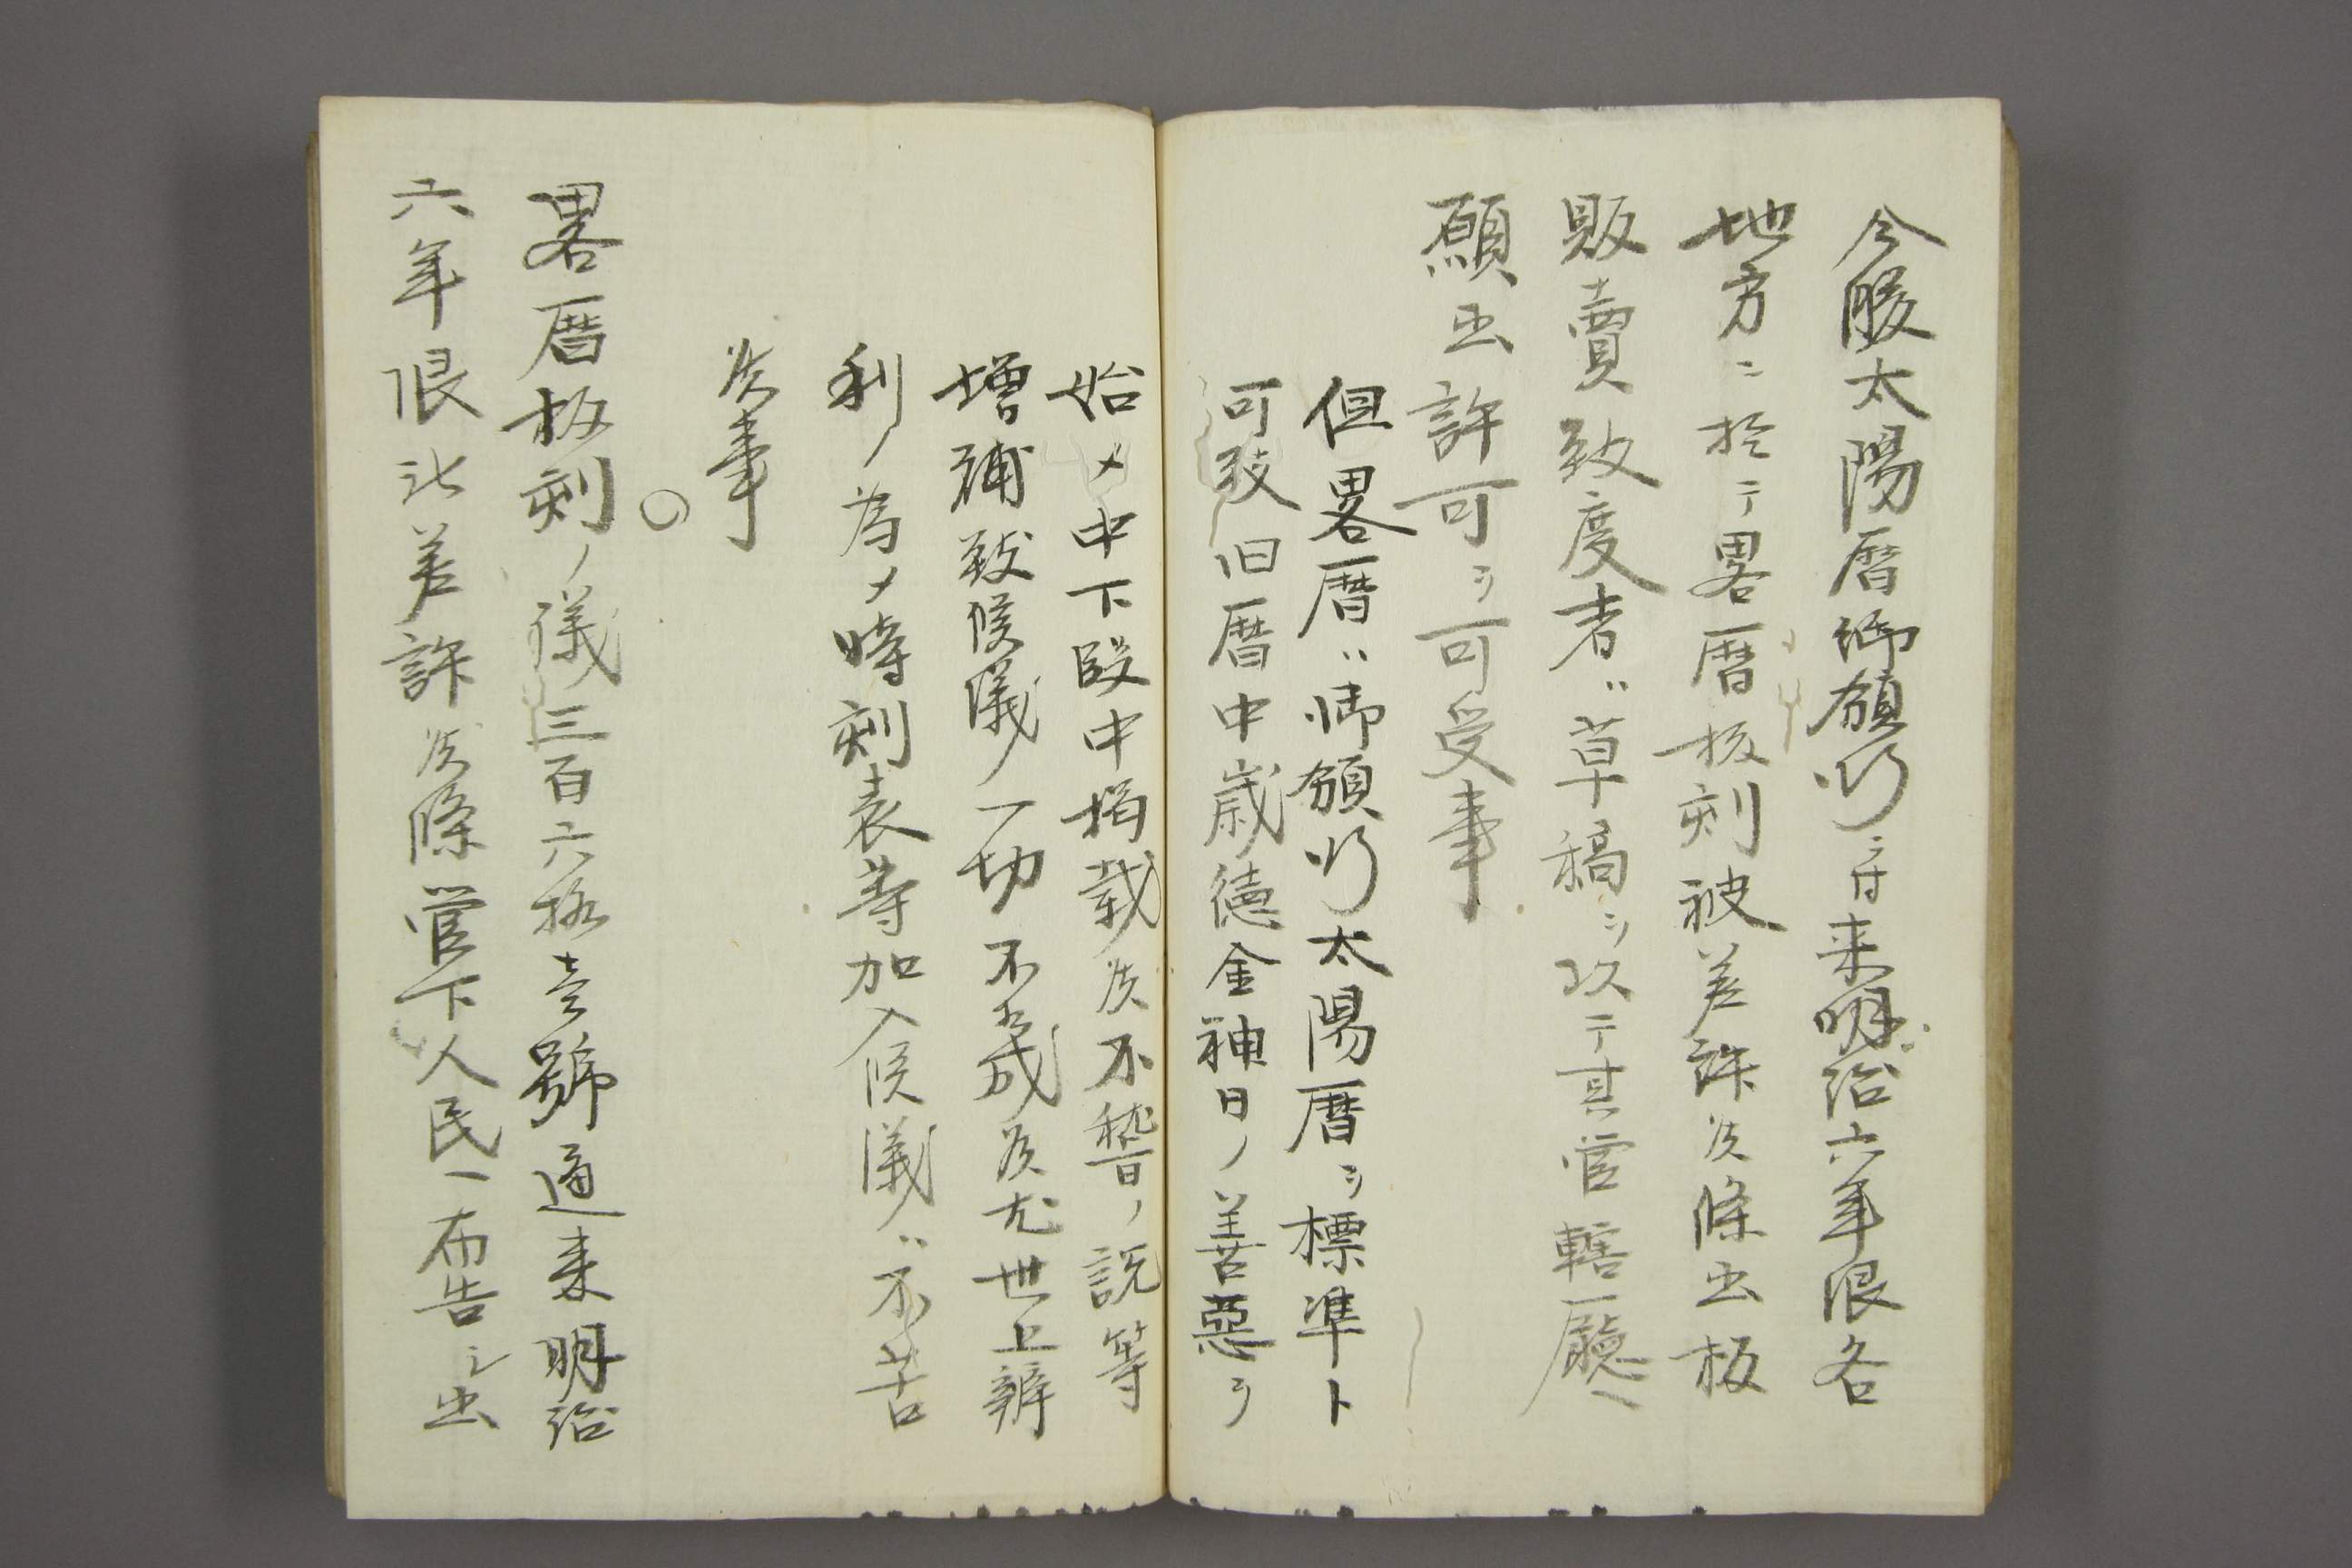 今般太陽暦御頒行ニ付来明治六年限各
地方ニ於テ畧暦板刻被差許候條出板
販賣致度者ハ草稿ヲ以テ其管轄廳ヘ
願出許可ヲ可受事
但畧暦ハ御頒行太陽暦ヲ標準ト
可致旧暦中歳徳金神日ノ善惡ヲ
始メ中下段中掲載候不稽ノ説等
増補致候儀ノ一切不相成候尤世上辨
利ノ為メ時刻表等加入候儀ハ不苦
候事
〇
畧暦板刻ノ儀三百六拾壱號通来明治
六年限被差許候條管下人民ヘ布告シ出